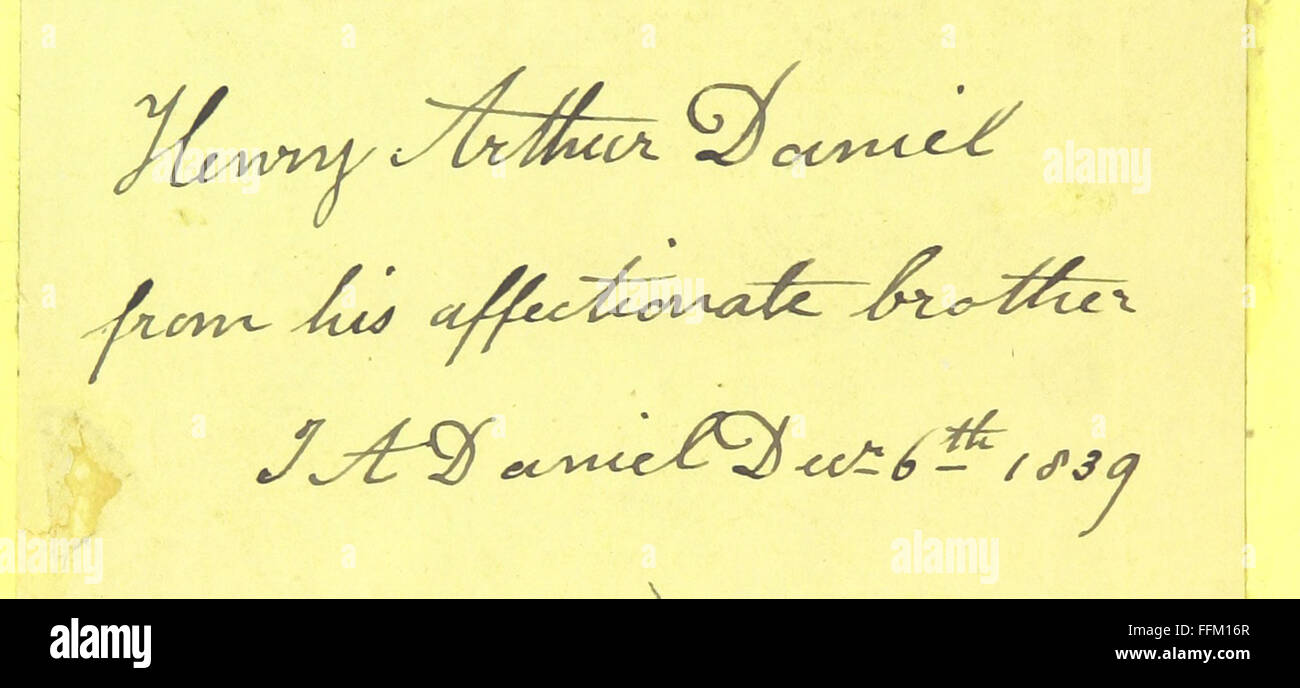 Henry Arthur Daniel
from his affectionate brother
J A Daniel Decr 6th 1839
alamy
Image ID: FFM16R
www.alamy.com